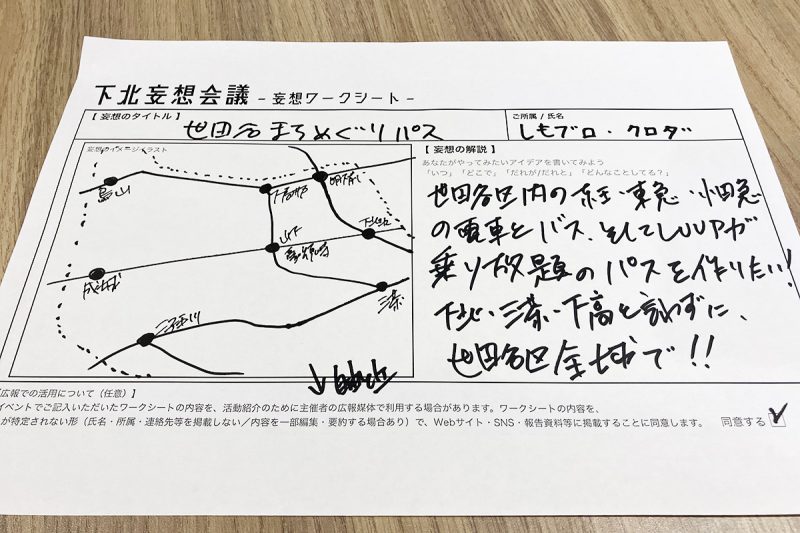 下北妄想会議 - 妄想ワークシート -
【 妄想のタイトル 】
世田谷まちめぐりパス
ご所属 / 氏名
しもブロ・クロダ
妄想のイメージイラスト
烏山
下高井戸
明大前
山下
豪徳寺
下北沢
成城
三茶
二子玉川
↓自由が丘
【 妄想の解説 】
あなたがやってみたいアイデアを書いてみよう
「いつ」「どこで」「だれが/だれと」「どんなことしてる？」
世田谷区内の京王・東急・小田急
の電車とバス、そしてLUUPが
乗り放題のパスを作りたい!
下北・三茶・下高と言わずに、
世田谷区全域で!!
広報での活用について（任意）】
イベントでご記入いただいたワークシートの内容を、活動紹介のために主催者の広報媒体で利用する場合があります。ワークシートの内容を、
が特定されない形（氏名・所属・連絡先等を掲載しない／内容を一部編集・要約する場合あり）で、Webサイト・SNS・報告資料等に掲載することに同意します。 同意する